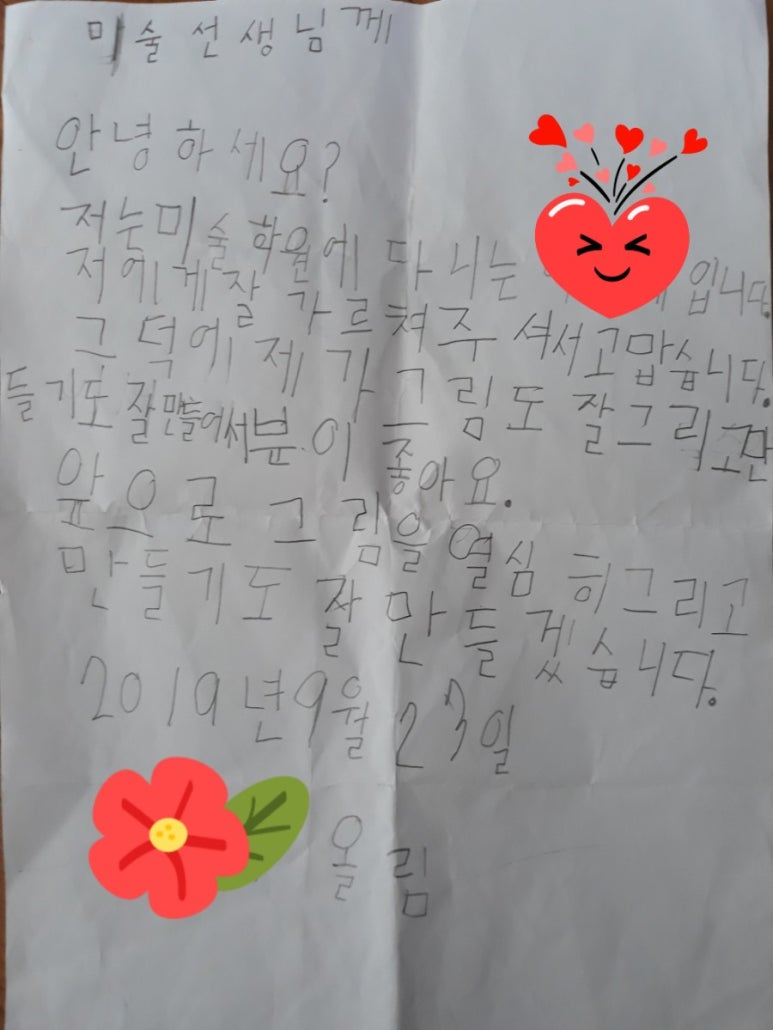 미술선생님께
안녕하세요?
저는미술학원에 다니는 입니다.
저에게잘 가르쳐주셔서고맙습니다.
그덕에제가그림도잘그리고만
들기도잘만들어서뷘이좋아요.
앞으로그림을열심히그리고
만들기도잘만들겠습니다.
2019년9월23일
올림